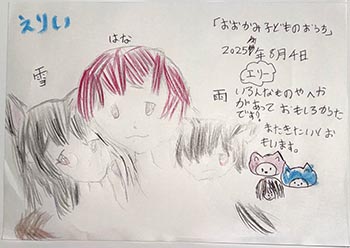 えりい
はな
雪
「おおかみ子どものおうち」
2025年8月4日
エリー
雨
いろんなものやへや
があっておもしろかった
です。
またきたいとお
もいます。